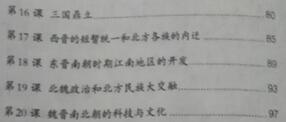 第16课 三国鼎立 80
第17课 西晋的短暂统一和北方各族的内迁 85
第18课 东晋南朝时期江南地区的开发 89
第19课 北魏政治和北方民族大交融 93
第20课 魏晋南北朝的科技与文化 97